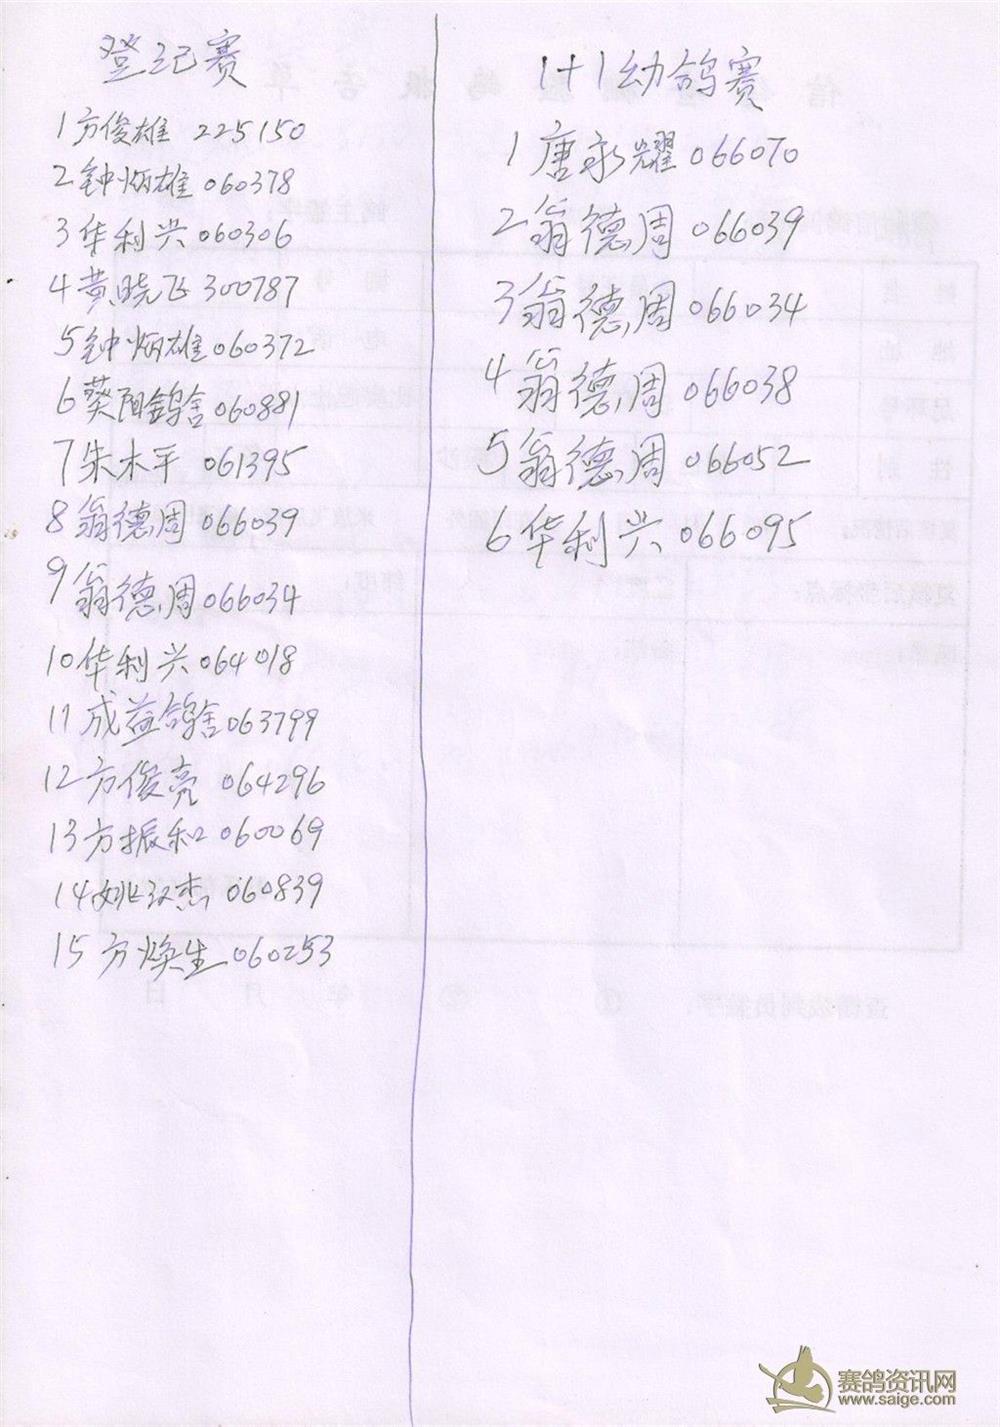 登记赛
1方俊雄 225150
2钟炳雄060378
3华利兴060306
4黄晓飞300787
5钟炳雄060372
6葵阳鸽舍060881
7朱木平 061395
8翁德周066039
9翁德周066034
10华利兴064018
11成益鸽舍063799
12方俊亮 064296
13方振和060069
14姚汉杰060839
15方焕生060253
1+1幼鸽赛
1唐永耀066070
2翁德周066039
3翁德周066034
4翁德周066038
5翁德周066052
6华利兴066095
赛鸽资讯网
www.saige.com